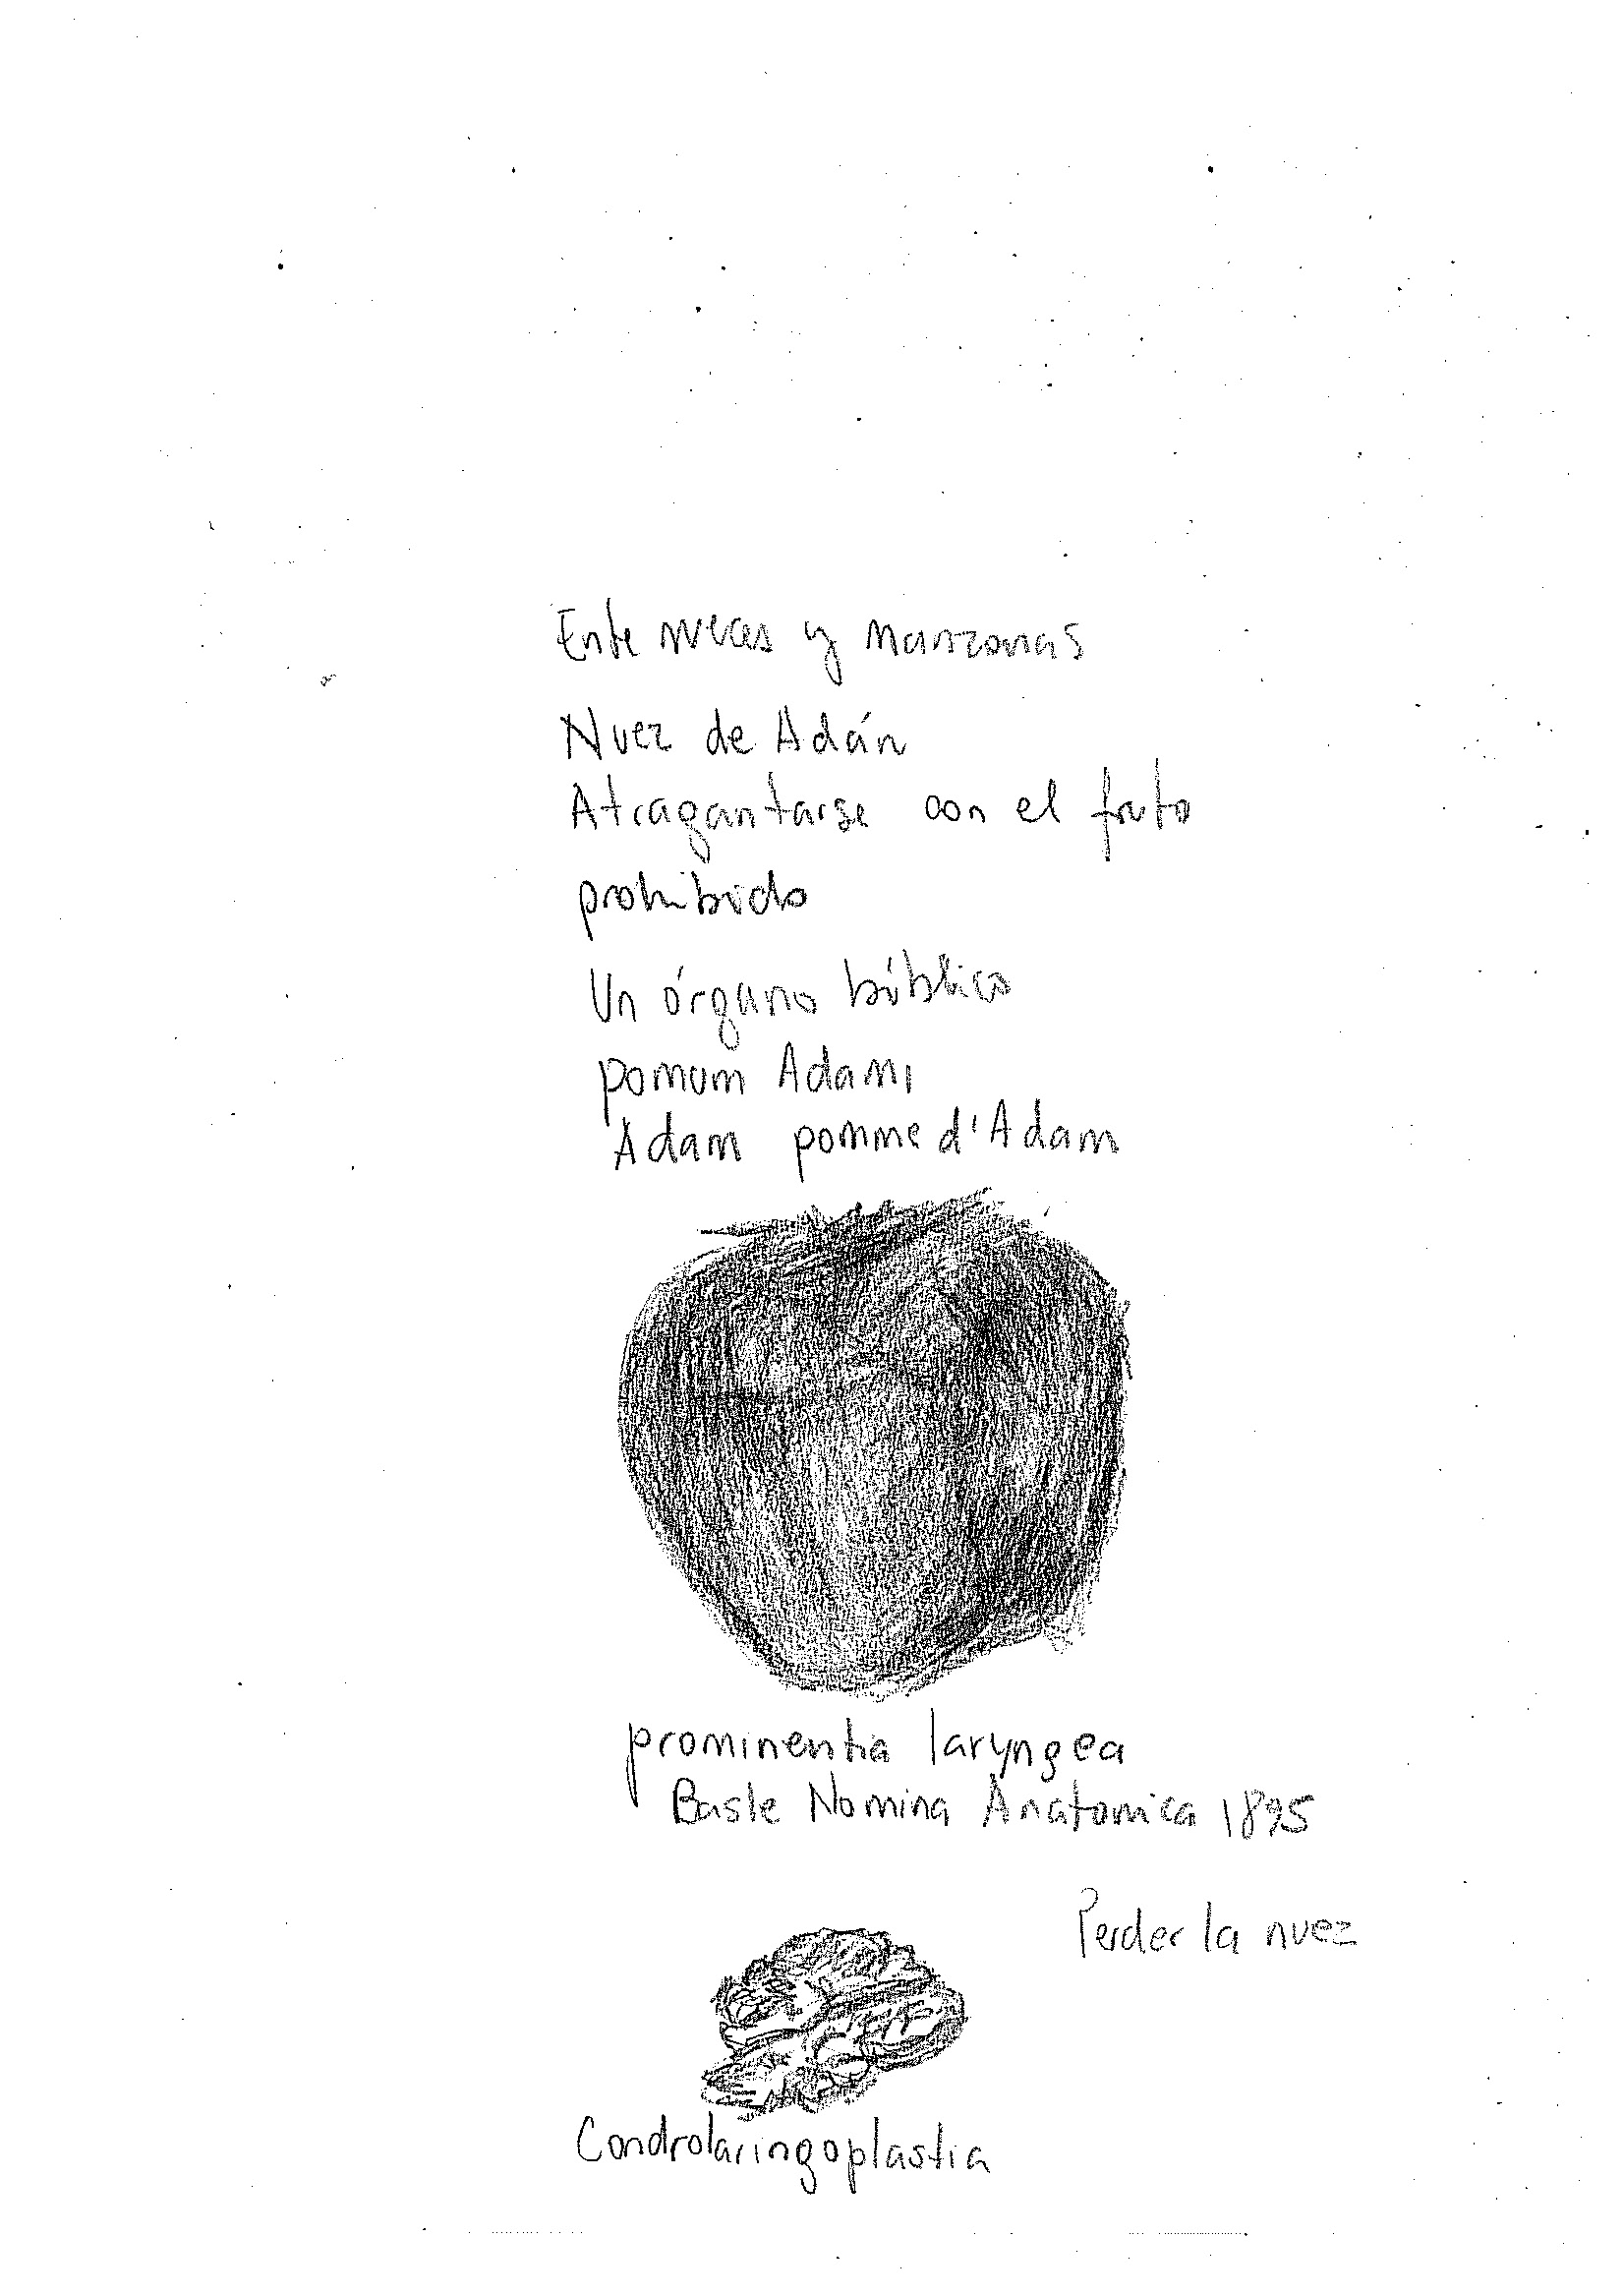 Ente nueces y manzanas
Nuez de Adán
Atragantarse con el fruto
prohibido
Un órgano bíblico
pomum Adami
Adam pomme d'Adam
prominentia laryngea
Basle Nomina Anatomica 1895
Perder la nuez
Condrolaringoplastia